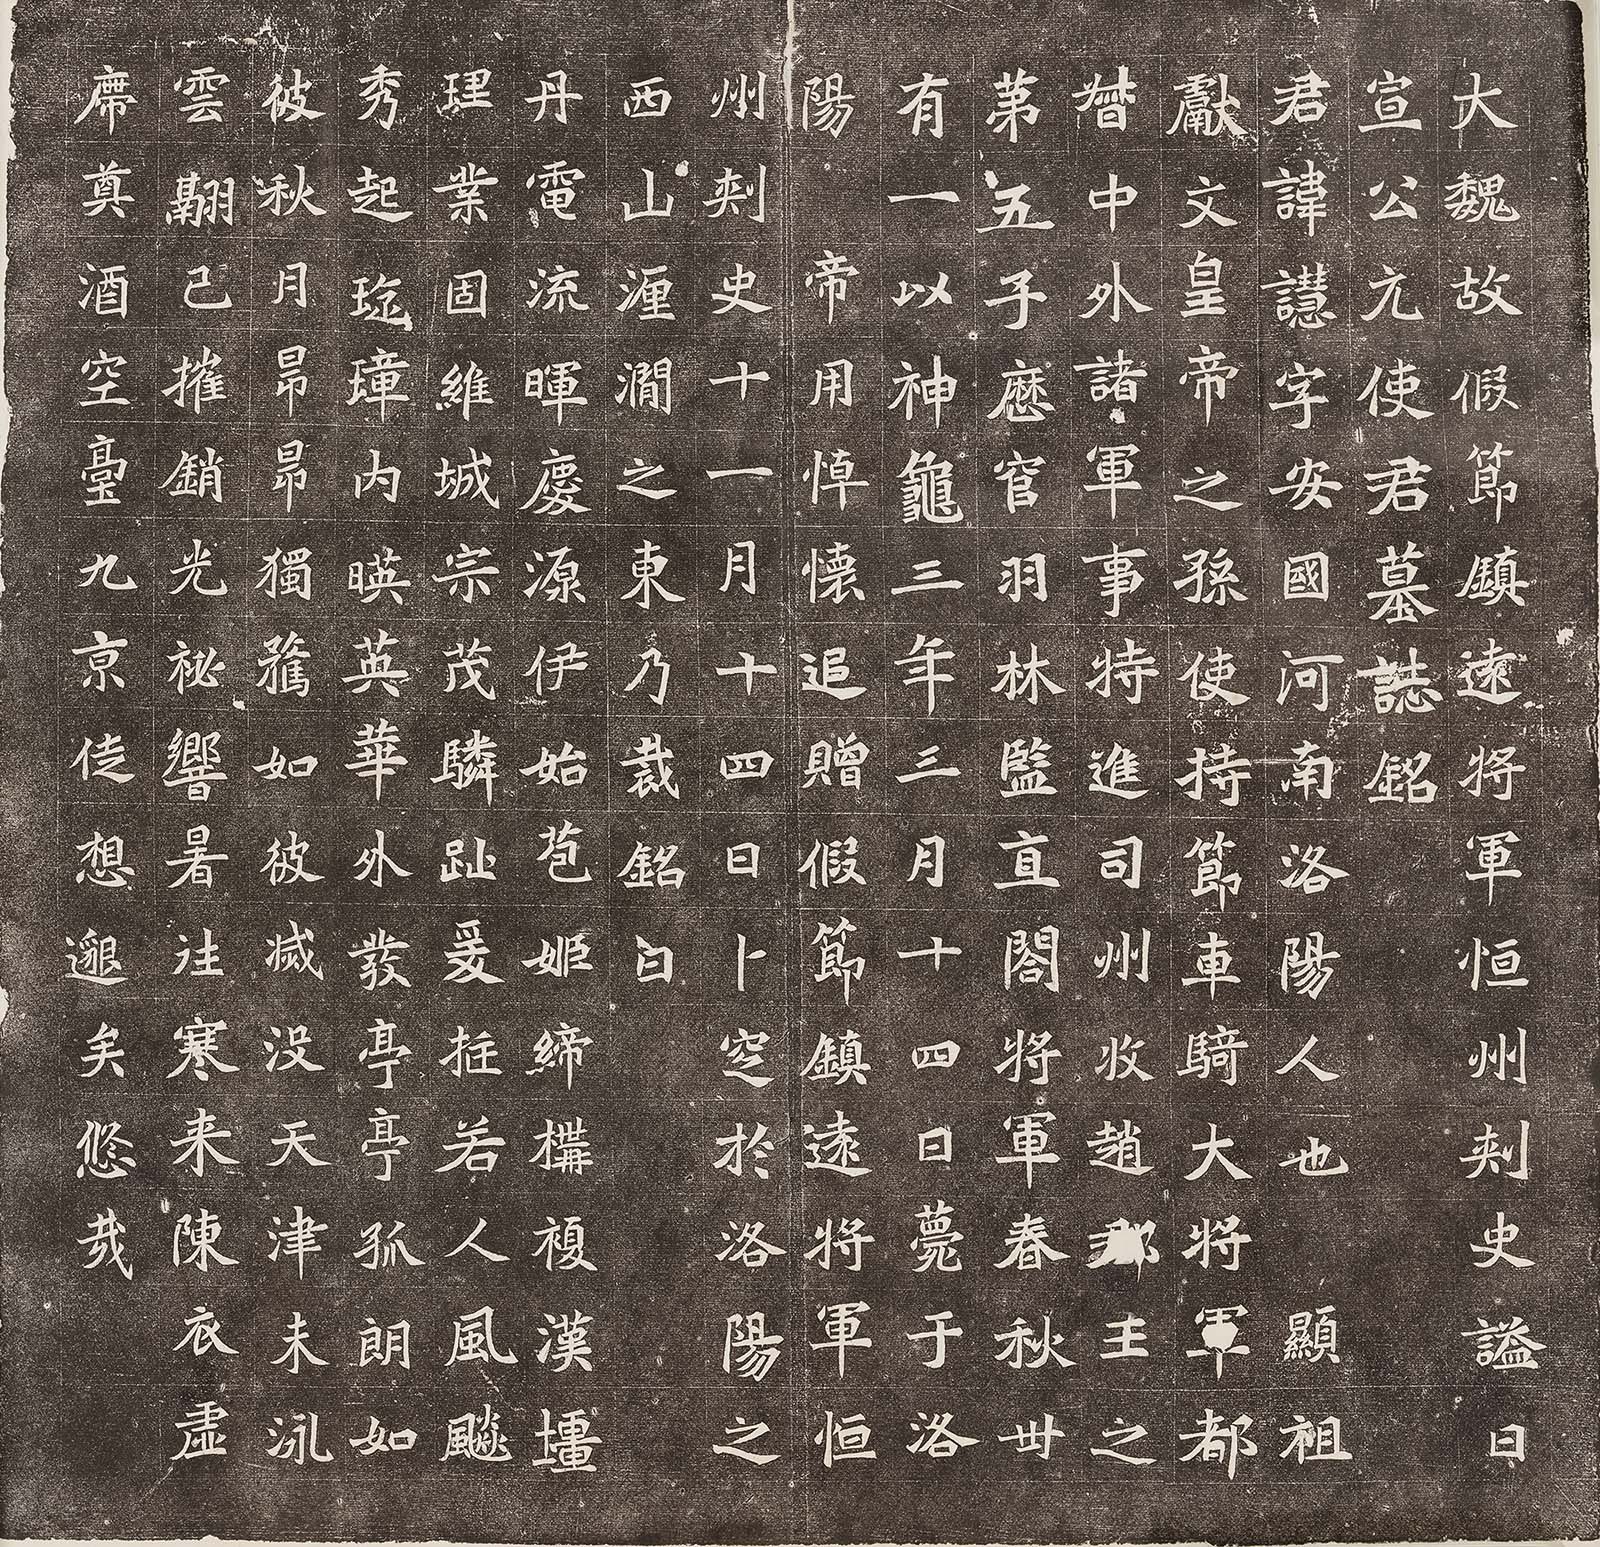 大魏故假節鎮遠將軍恒州刺史謚曰
宣公元使君墓誌銘
君諱譿字安國河南洛陽人也 顯祖
獻文皇帝之孫使持節車騎大將軍都
督中外諸軍事特進司州牧趙郡王之
第五子歷官羽林監直閤將軍春秋卅
有一以神龜三年三月十四日薨于洛
陽 帝用悼懷追贈假節鎮遠將軍恒
州刺史十一月十四日卜窆於洛陽之
西山瀍澗之東乃裁銘曰
丹電流暉慶源伊始苞姬締構複漢疆
理業固維城宗茂驎趾爰挺若人風飈
秀起琁璋內暎英華外發亭亭孤朗如
彼秋月昂昂獨騖如彼滅沒天津未泳
雲翮已摧銷光祕響暑往寒来陳衣虛
席奠酒空臺九京徒想邈矣悠哉